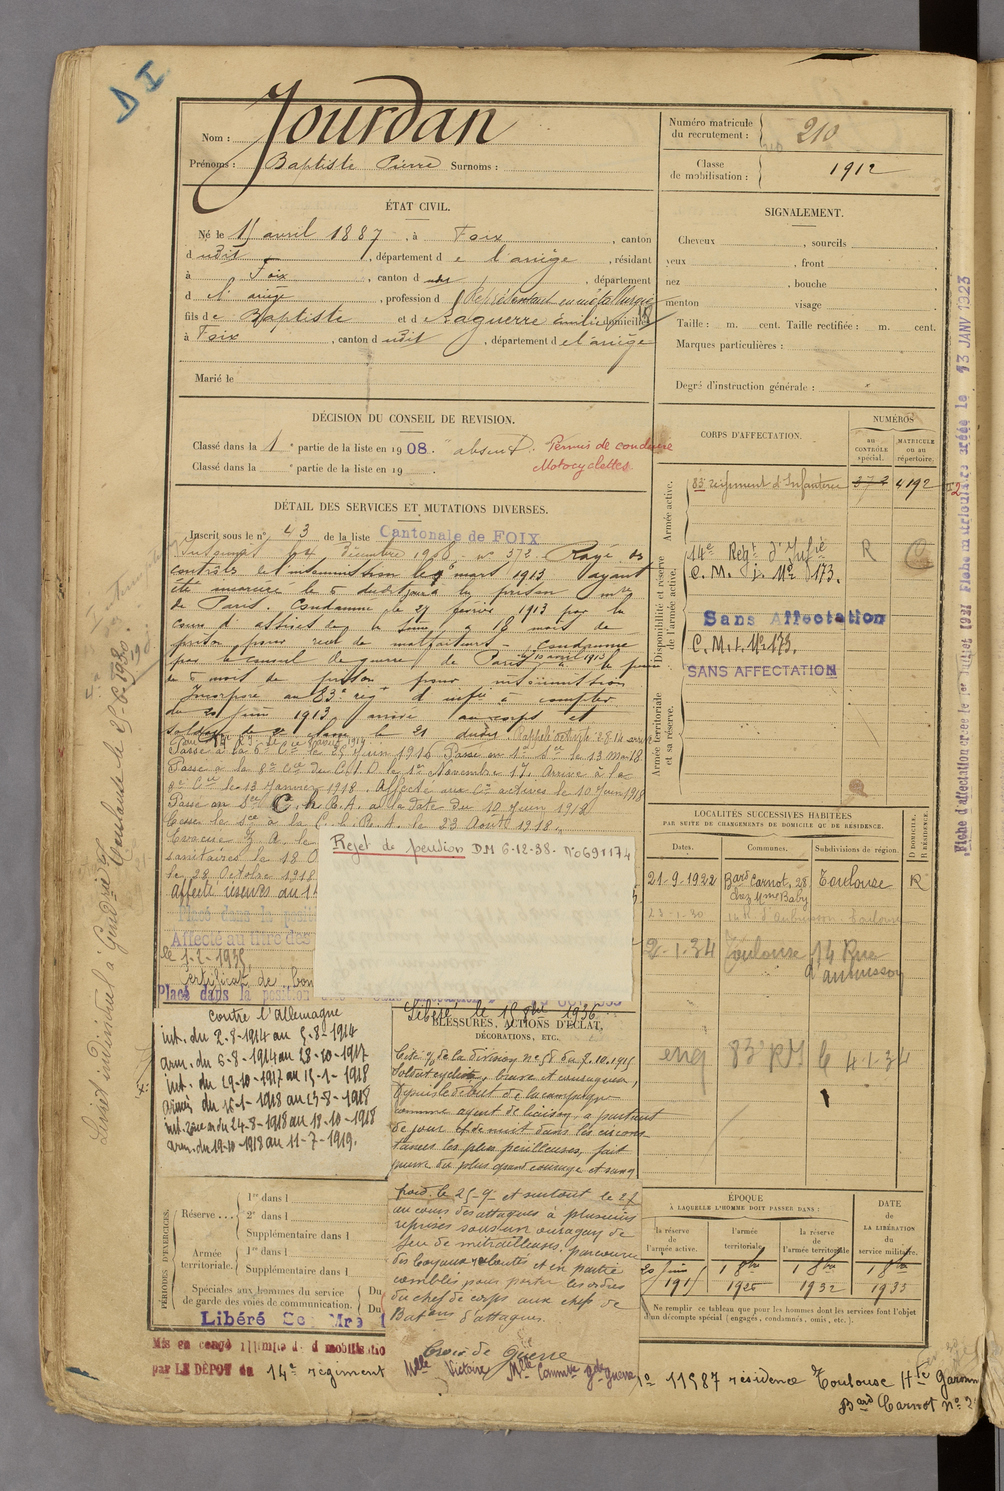 D I
Jourdan
Nom :
Prénoms : Baptiste Pierre Surnoms :
Numéro matricule du recrutement : 210
Classe de mobilisation : 1912
ÉTAT CIVIL.
Né le 15 avril 1887, à Foix, canton
dudit, département de l'ariège, résidant
à Foix, canton dudit, département
d el ariège, profession d Représentant en métallurgie
fils de Baptiste et de Laguerre Émilie domiciliés
à Foix, canton dudit, département de l'ariège
Marié le
SIGNALEMENT.
Cheveux , sourcils
yeux , front
nez , bouche
menton visage
Taille : m. cent. Taille rectifiée : m. cent.
Marques particulières :
Degré d'instruction générale :
DÉCISION DU CONSEIL DE REVISION.
Classé dans la 1e partie de la liste en 1908. absent. Permis de conduire
Classé dans la e partie de la liste en 19 Motocyclettes
DÉTAIL DES SERVICES ET MUTATIONS DIVERSES.
Inscrit sous le n° 43 de la liste Cantonale de FOIX
Décembre 1908 n° 372. Rayé des
contrôles de l'insoumission le mars 1913 ayant
été incarcéré le à la prison
de Paris. Condamné le 27 février 1913 par la
cour d'assises de la Seine à 18 mois de
prison pour recel de malfaiteurs - condamné
par le conseil de guerre de Paris le 10 avril 1913 à la peine
de 6 mois de prison pour insoumission
Incorporé au 83e régt d'infie à compter
du 20 Juin 1913 arrivé au corps et
soldat de 2e classe le 21 dudit. Rappelé
Passé à la 6e Cie le 25 Juin 1916 Passé au 1er le 13 Mai 18
Passé à la 8e Cie du C.I.D. le 1er Novembre 17. Arrivé à la
Cie le 13 Janvier 1918. Affecté aux Cies actives le 10 Juin 1918
Passé au C.h.R.A. à la date du 10 Juin 1918
Cesse le sce à la C.h.R.A. le 23 Août 1918.
Evacué Z.A. le
sanitaires le 18 O
le 28 Octobre 1918
affecté réserves au 14
Placé dans la posit
Affecté au titre des
le 1-1-1935
Certificat de bon
Placé dans la position
Rejet de pension DM 6-12-38. N° 0691174
Libéré le 15 8bre 1936.
contre l'allemagne
int. du 2-8-1914 au 5-8-1914
arm. du 6-8-1914 au 28-10-1917
int. du 29-10-1917 au 15-1-1918
armées du 16-1-1918 au 23-8-1918
int. du 24-8-1918 au 18-10-1918
arm. du 19-10-1918 au 11-7-1919.
BLESSURES, ACTIONS D'ÉCLAT, DÉCORATIONS, ETC.
Cité O/ de la division n° 58 du 7.10.1915
Soldat cycliste, brave et courageux,
Depuis le début de la campagne
comme agent de liaison, a partout
de jour et de nuit dans les circons-
tances les plus périlleuses, fait
preuve du plus grand courage et sang
froid. le 25-9 et surtout le 27
au cours des attaques à plusieurs
reprises sous un ouragan de
feu de mitrailleuses, parcouru
des boyaux et en partie
comblés pour porter les ordres
du chef de corps aux chefs de
Batons d'attaques.
Croix de Guerre
Mlle Victoire Mlle Commve gde guerre
CORPS D'AFFECTATION.
NUMÉROS
AU CONTRÔLE spécial.
MATRICULE ou au répertoire.
Armée active.
83e régiment d'Infanterie 372 4192
Disponibilité et réserve de l'armée active.
14e Regt d'Infie R
C.M. j. N° 173.
Sans Affectation
C.M.1. N° 173.
SANS AFFECTATION
Armée territoriale et sa réserve.
LOCALITÉS SUCCESSIVES HABITÉES
PAR SUITE DE CHANGEMENTS DE DOMICILE OU DE RÉSIDENCE.
Dates. Communes. Subdivisions de région. D DOMICILE. R RÉSIDENCE.
21-9-1922 Bard Carnot, 28 Toulouse R
chez Mme Baby
23-1-30 14 R. d'Aubuisson Toulouse
2-1-34 Toulouse 14 Rue
d'aubuisson
enq 83e RI le 4-1-34
PÉRIODES D'EXERCICES.
Réserve ...
1re dans l
2e dans l
Supplémentaire dans l
Armée territoriale.
1re dans l
Supplémentaire dans l
Spéciales aux hommes du service de garde des voies de communication.
Du
Du
Libéré
ÉPOQUE
À LAQUELLE L'HOMME DOIT PASSER DANS :
la réserve de l'armée active.
l'armée territoriale.
la réserve de l'armée territoriale
DATE de LA LIBÉRATION du service militaire.
20 Juin 1915
1 8bre 1926
1 8bre 1932
1 8bre 1935
Ne remplir ce tableau que pour les hommes dont les services font l'objet d'un décompte spécial (engagés, condamnés, omis, etc.).
Mis en congé illimité de démobilisatio
par LE DÉPOT du 14e régiment
n° 11987 résidence Toulouse Hte Garonn
Bard Carnot n° 2
Fiche d'affectation créée le 1er Juillet 1921 Fiche matriculaire créée le 13 JANV 1923
Livret individuel à Gendrie
Toulouse le 25-8-1928.